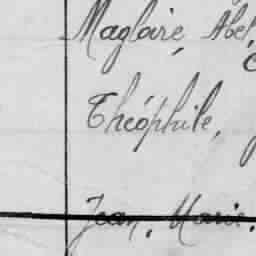 Magloire, Abel,
Théophile,
Jean, Marie.